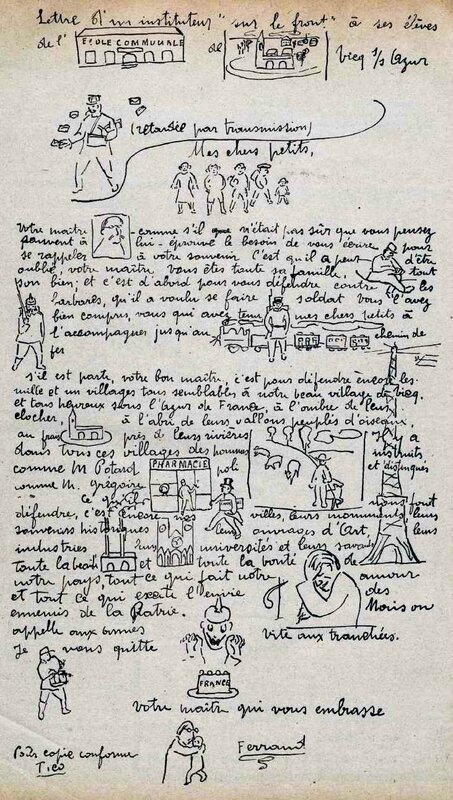 Lettre d'un instituteur "sur le front" à ses élèves
de l' ECOLE COMMUNALE de Vecq s/s Azur
(retardée par transmission)
Mes chers petits,
Votre maître - comme s'il que n'était pas sûr que vous pensez
souvent à lui - éprouve le besoin de vous écrire pour
se rappeler à votre souvenir C'est qu'il a peur d'être
oublié, votre maître, vous êtes toute sa famille, tout
son bien; et c'est d'abord pour vous défendre contre les
barbares, qu'il a voulu se faire soldat vous l'avez
bien compris, vous qui avez tenu mes chers petits à
l'accompagner jusqu'au chemin de
fer
s'il est parti, votre bon maître, c'est pour défendre encore les
mille et un villages tous semblables à notre beau village de Vecq.
et tous heureux sous l'azur de France, à l'ombre de leur
clocher, à l'abri de leurs vallons peuplés d'oiseaux.
au près de leurs rivières Il y a
dans tous ces villages des hommes instruits
comme M Potard PHARMACIE poli et distingués
comme M. Grégoire
ce qu'il nous faut
défendre, c'est encore nos villes, leurs monuments leurs
souvenirs historiques leurs ouvrages d'Art, leurs
industries leurs universités et leurs savants
toute la beauté et toute la bonté de
notre pays, tout ce qui fait notre amour
et tout ce qui excite l'envie des
ennemis de la Patrie. Mais on
appelle aux armes vite aux tranchées.
Je vous quitte
FRANCE
votre maître qui vous embrasse
Pour copie conforme Ferrand
Tico